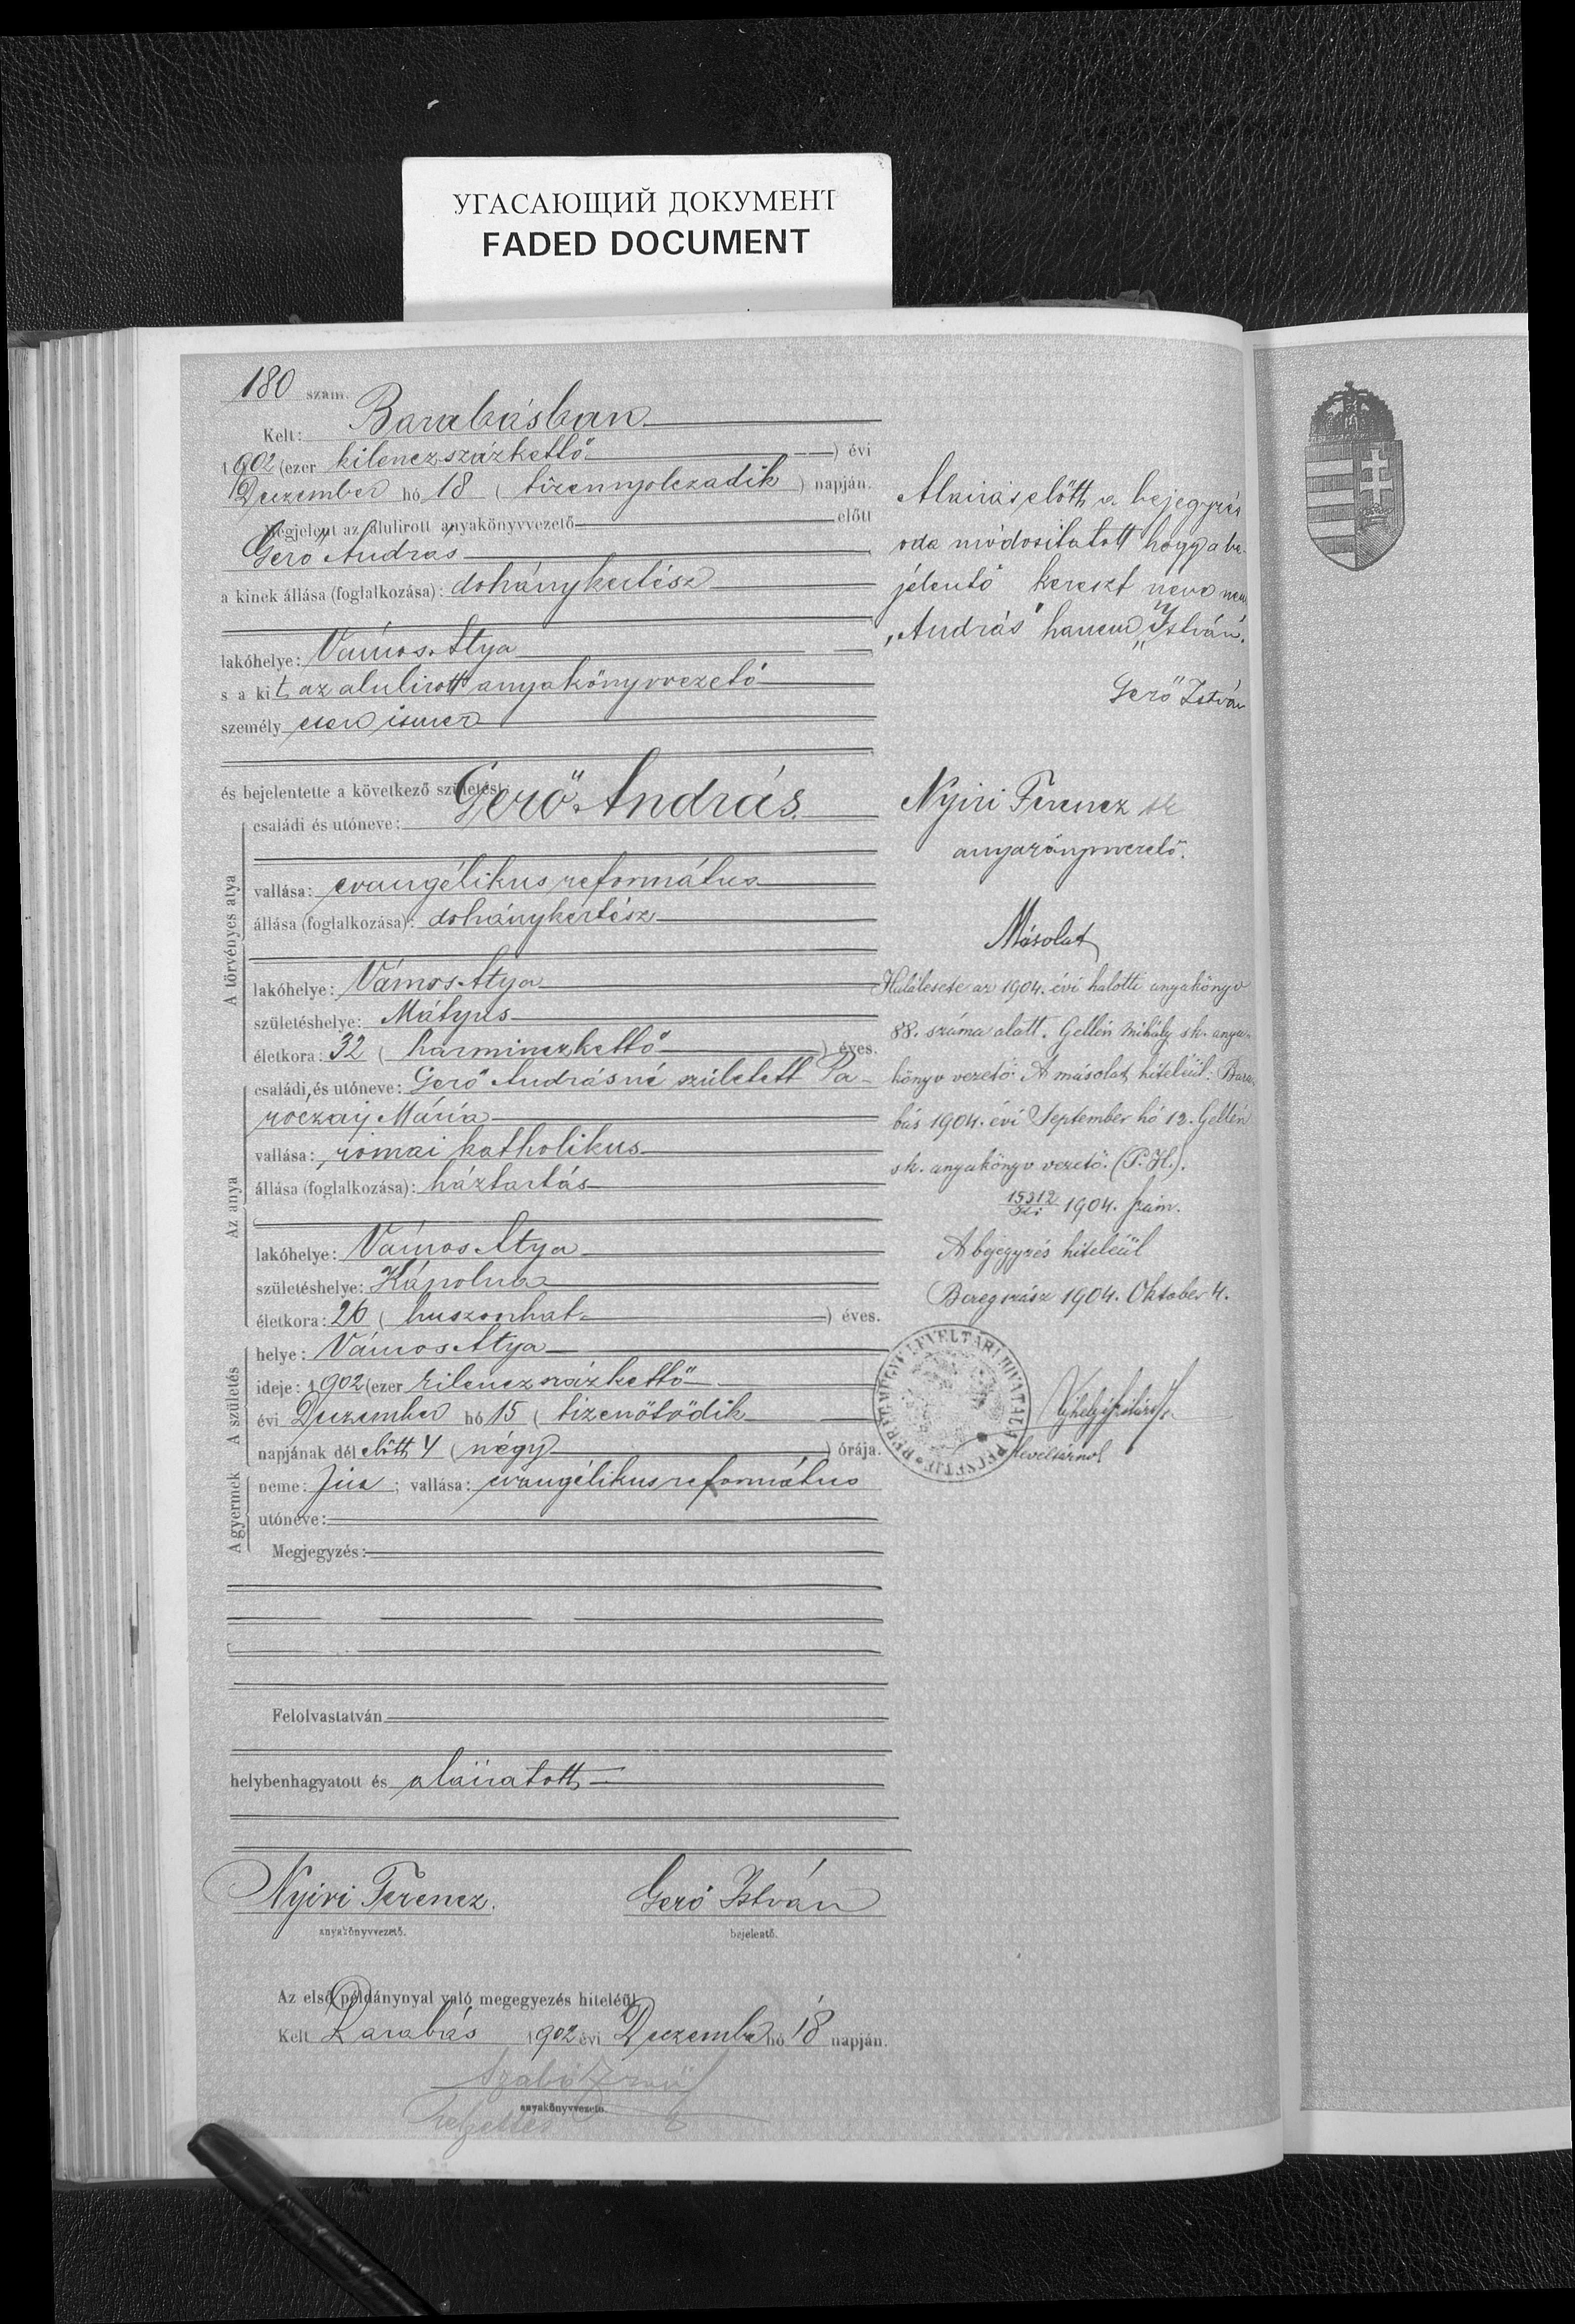 УГАСАЮЩИЙ ДОКУМЕНТ
FADED DOCUMENT
180 szám.
Kelt: Barabásban
1902 (ezer kilenczszázkettő ) évi
Deczember hó 18 ( tizennyolczadik ) napján.
Megjelent az alulirott anyakönyvvezető előtt
Gerő András
a kinek állása (foglalkozása): dohánykertész
lakóhelye: Vámos-Atya
s a kit az alulirott anyakönyvvezető
személyesen ismer
és bejelentette a következő születést:
A törvényes atya
családi és utóneve: Gerő András
vallása: evangélikus református
állása (foglalkozása): dohánykertész
lakóhelye: Vámos-Atya
születéshelye: Mátyus
életkora: 32 ( harminczkettő ) éves.
Az anya
családi és utóneve: Gerő Andrásné született Pa-
róczay Mária
vallása: római katholikus
állása (foglalkozása): háztartás
lakóhelye: Vámos Atya
születéshelye: Kápolna
életkora: 26 ( huszonhat ) éves.
A születés
helye: Vámos Atya
ideje: 1902 (ezer kilenczszázkettő
évi Deczember hó 15 ( tizenötödik
napjának dél előtt 4 ( négy ) órája.
A gyermek
neme: fiu ; vallása: evangélikus református
utóneve:
Megjegyzés:
Felolvastatván
helybenhagyatott és aláiratott
Nyiri Ferencz. Gerő István
anyakönyvvezető. bejelentő.
Az első példánynyal való megegyezés hiteléül
Kelt Barabás 1902 évi Deczember hó 18 napján.
Szabó
anyakönyvvezető.
helyettes
Aláirás előtt a bejegyzés
oda módositatott hogy a be-
jelentő kereszt neve nem
„András" hanem „István".
Gerő István
Nyiri Ferencz sk
anyakönyvvezető.
Másolat
Halálesete az 1904. évi halotti anyakönyv
88. száma alatt. Gellén Mihály sk. anya-
könyv vezető. A másolat hiteléül: Bara-
bás 1904. évi September hó 12. Gellén
sk. anyakönyv vezető. (P.H.).
15312 1904. szám.
A bejegyzés hiteléül
Beregszász 1904. Oktober 4.
BEREGMEGYE LEVÉLTÁRI HIVATALA PECSÉTJE
levéltárnok